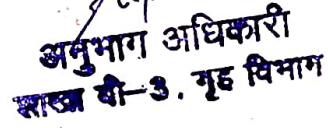 अनुभाग अधिकारी
शाखा बी-3, गृह विभाग